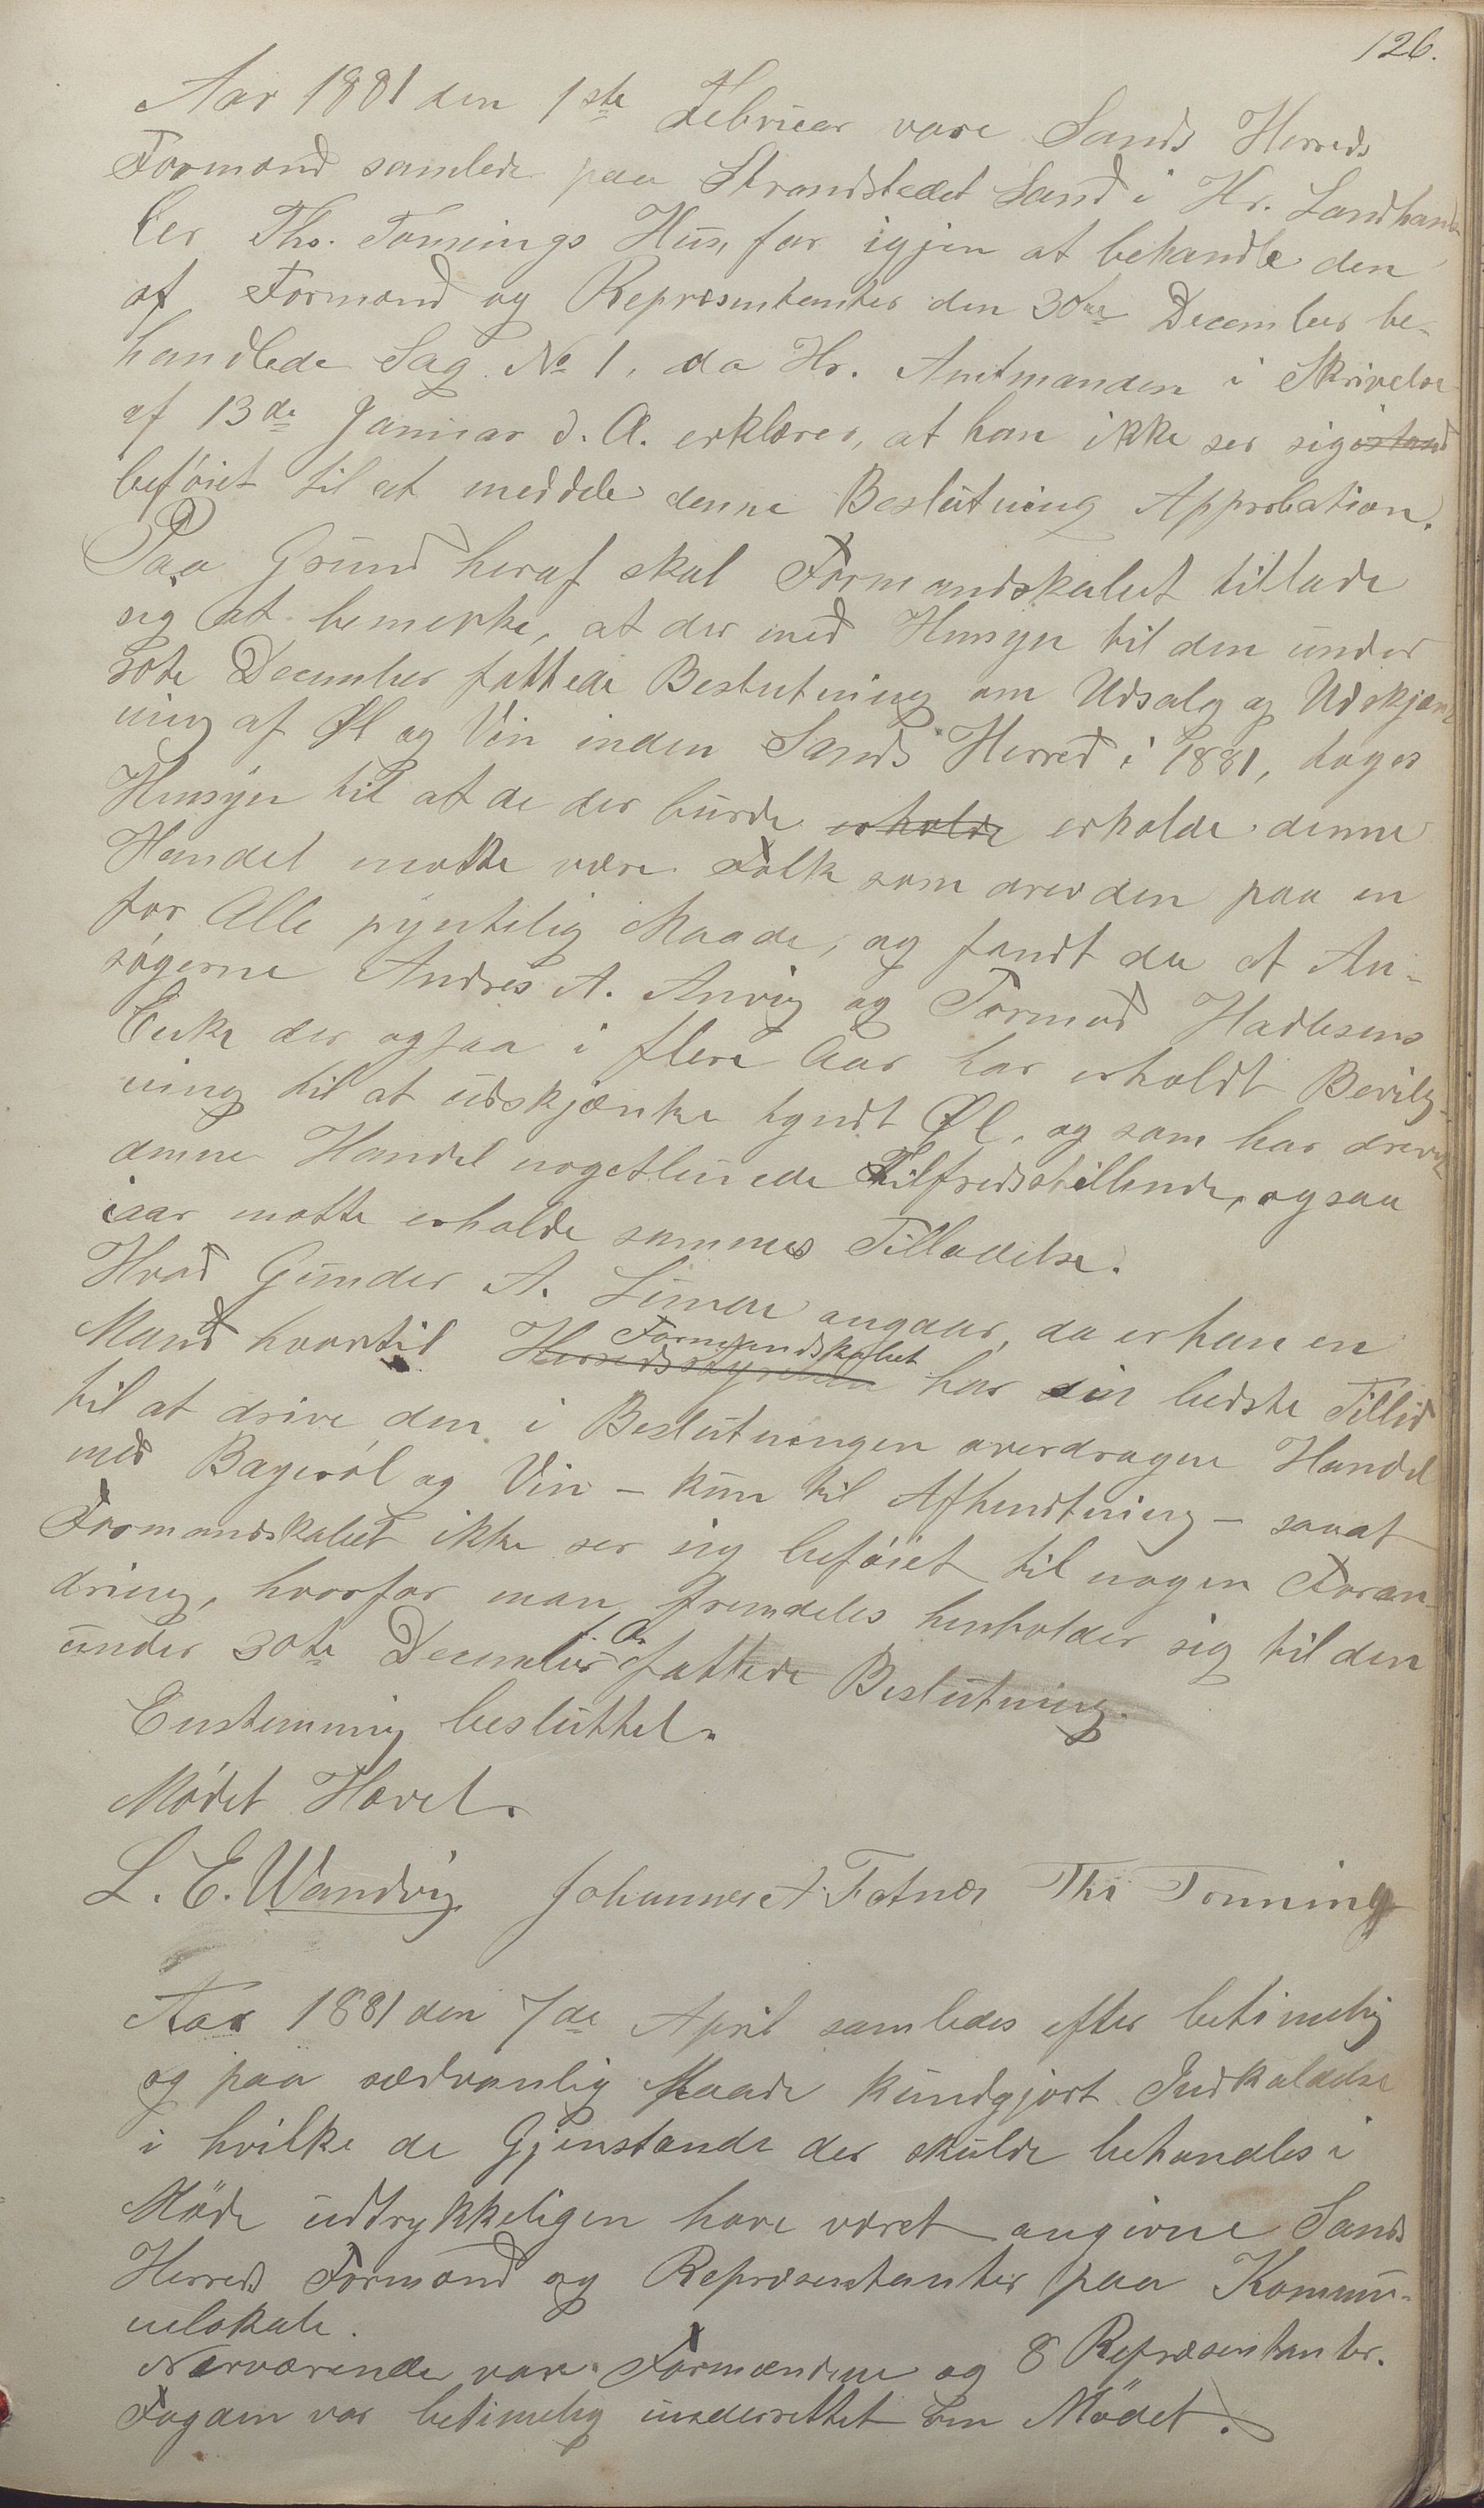 126.
Aar 1881 den 1ste Februar vare Sands Herreds
Formænd samlede paa Strandstedet Sand i Hr. Landhand
ler Ths. Tønnings Hus, for igjen at behandle den
af Formænd og Repræsentanter den 30te December be-
handlede Sag No 1, da Hr. Amtmanden i Skrivelse
af 13de Januar d. A. erklærer, at han ikke ser sig istand
beføiet til at meddele denne Beslutning Approbation.
Paa Grund heraf skal Formandskabet tillade
sig at bemerke, at der med Hensyn til den under
30te December fattede Beslutning om Udsalg og Udskjænk
ning af Øl og Vin inden Sands Herred i 1881, toges
Hensyn til at de der burde erholde erholde denne
Handel maatte være Folk som drev den paa en
for Alle pyntelig Maade, og fandt da at An-
søgerne Andreas A. Anvig og Tormod Hadlesens
Enke der ogsaa i flere Aar har erholdt Bevilg-
ning til at udskjænke tyndt Øl, og som har drevet
denne Handel nogetlunede Tilfredsstillende, ogsaa
iaar motte erholde sammes Tilladelse.
Hvad Gunder A. Limere angaar, da er han en
Mand hvortil Herredsstyrelsen Formandskabet har sin bedste Tillid
til at drive den i Beslutningen overdragne Handel
med Bayerøl og Vin - kun til Afhendtning - saaat
Formandskabet ikke ser sig beføiet til nogen Foran-
dring, hvorfor man fremdeles henholder sig til den
under 30te December f. A. fattede Beslutning.
Enstemmig besluttet.
Mødet Hævet.
L. E. Wandvig Johannes A. Fatnes Ths Tønning
Aar 1881 den 7de April samledes efter betimelig
og paa sædvanlig Maade kundgjort Indkaldelse
i hvilke de Gjenstande der skulde behandles i
Møde udtrykkeligen have været angivne Sands
Herreds Formænd og Repræsentanter paa Kommu-
nelokale.
Nærværende var Formændene og 8 Repræsentanter.
Fogden var betimelig underrettet om Mødet.